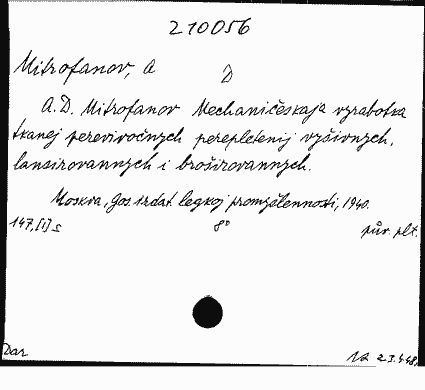 210056
Mitrofanov, A D
A. D. Mitrofanov Mechaničeskaja vyrabotka
tkanej perevivočnych perepletenij vyšivnych,
lansirovannych i broširovannych.
Moskva, Gos. izdat. legkoj promyšlennosti, 1940.
147,[1] s 8° pův. plt.
Dar 23.4.48.